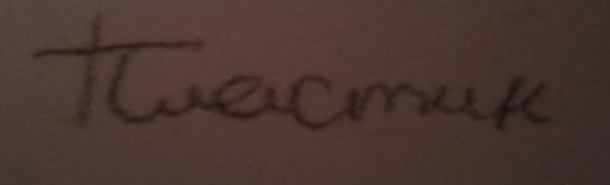 Пластик